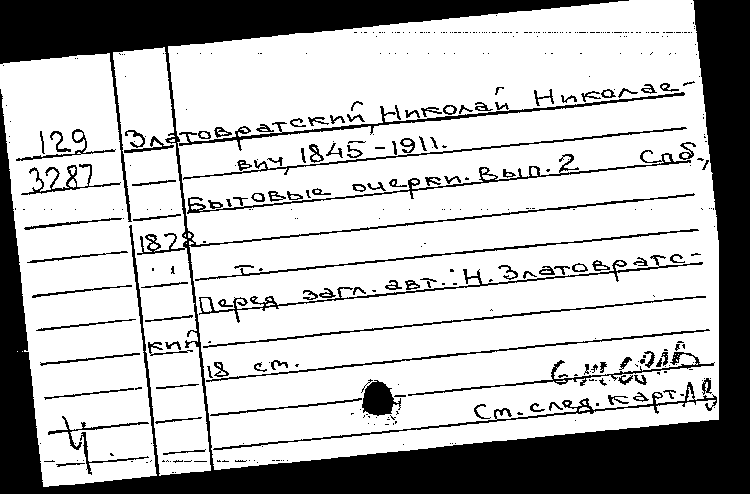 129 Златовратский, Николай Николае-
3287 вич, 1845-1911.
Бытовые очерки. Вып. 2 Спб.,
1878.
т.
Перед загл. авт.: Н. Златовратс-
кий.
18 см.
См. след. карт.
Ч.